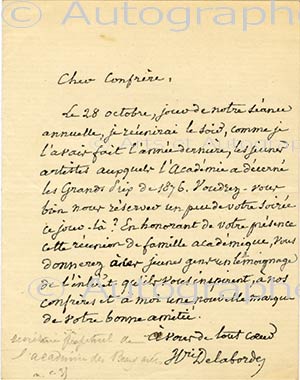 © Autographe
Cher Confrère,
Le 28 octobre, jour de notre séance
annuelle, je réunirai le soir, comme je
l'avais fait l'année dernière, les jeunes
artistes auxquels l'Académie a décerné
les Grands Prix de 1876. Voudrez-vous
bien nous réserver un peu de votre soirée
ce jour-là ? En honorant de votre présence
cette réunion de famille académique, vous
donnerez à des jeunes gens un témoignage
de l'intérêt qu'ils vous inspirent, à vos
confrères et à moi une nouvelle marque
de votre bonne amitié.
à vous de tout coeur
Hri Delaborde
secrétaire perpétuel de
l'académie des Beaux arts